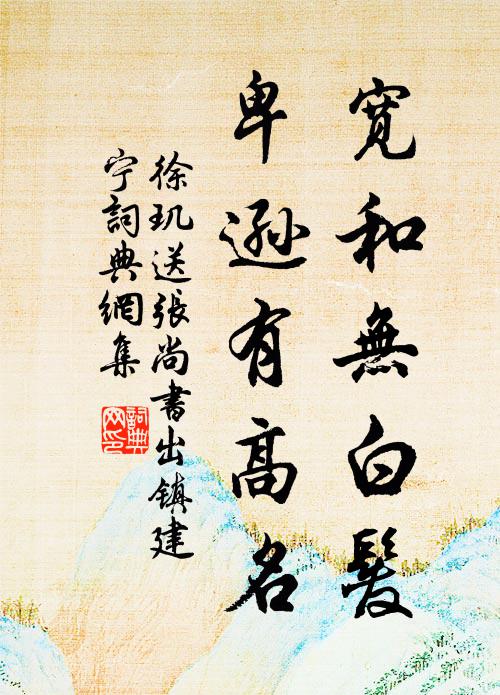 寬和無白髮
卑遜有高名
徐玑送張尚書出鎮建
宁詞典網集
詞典
网印